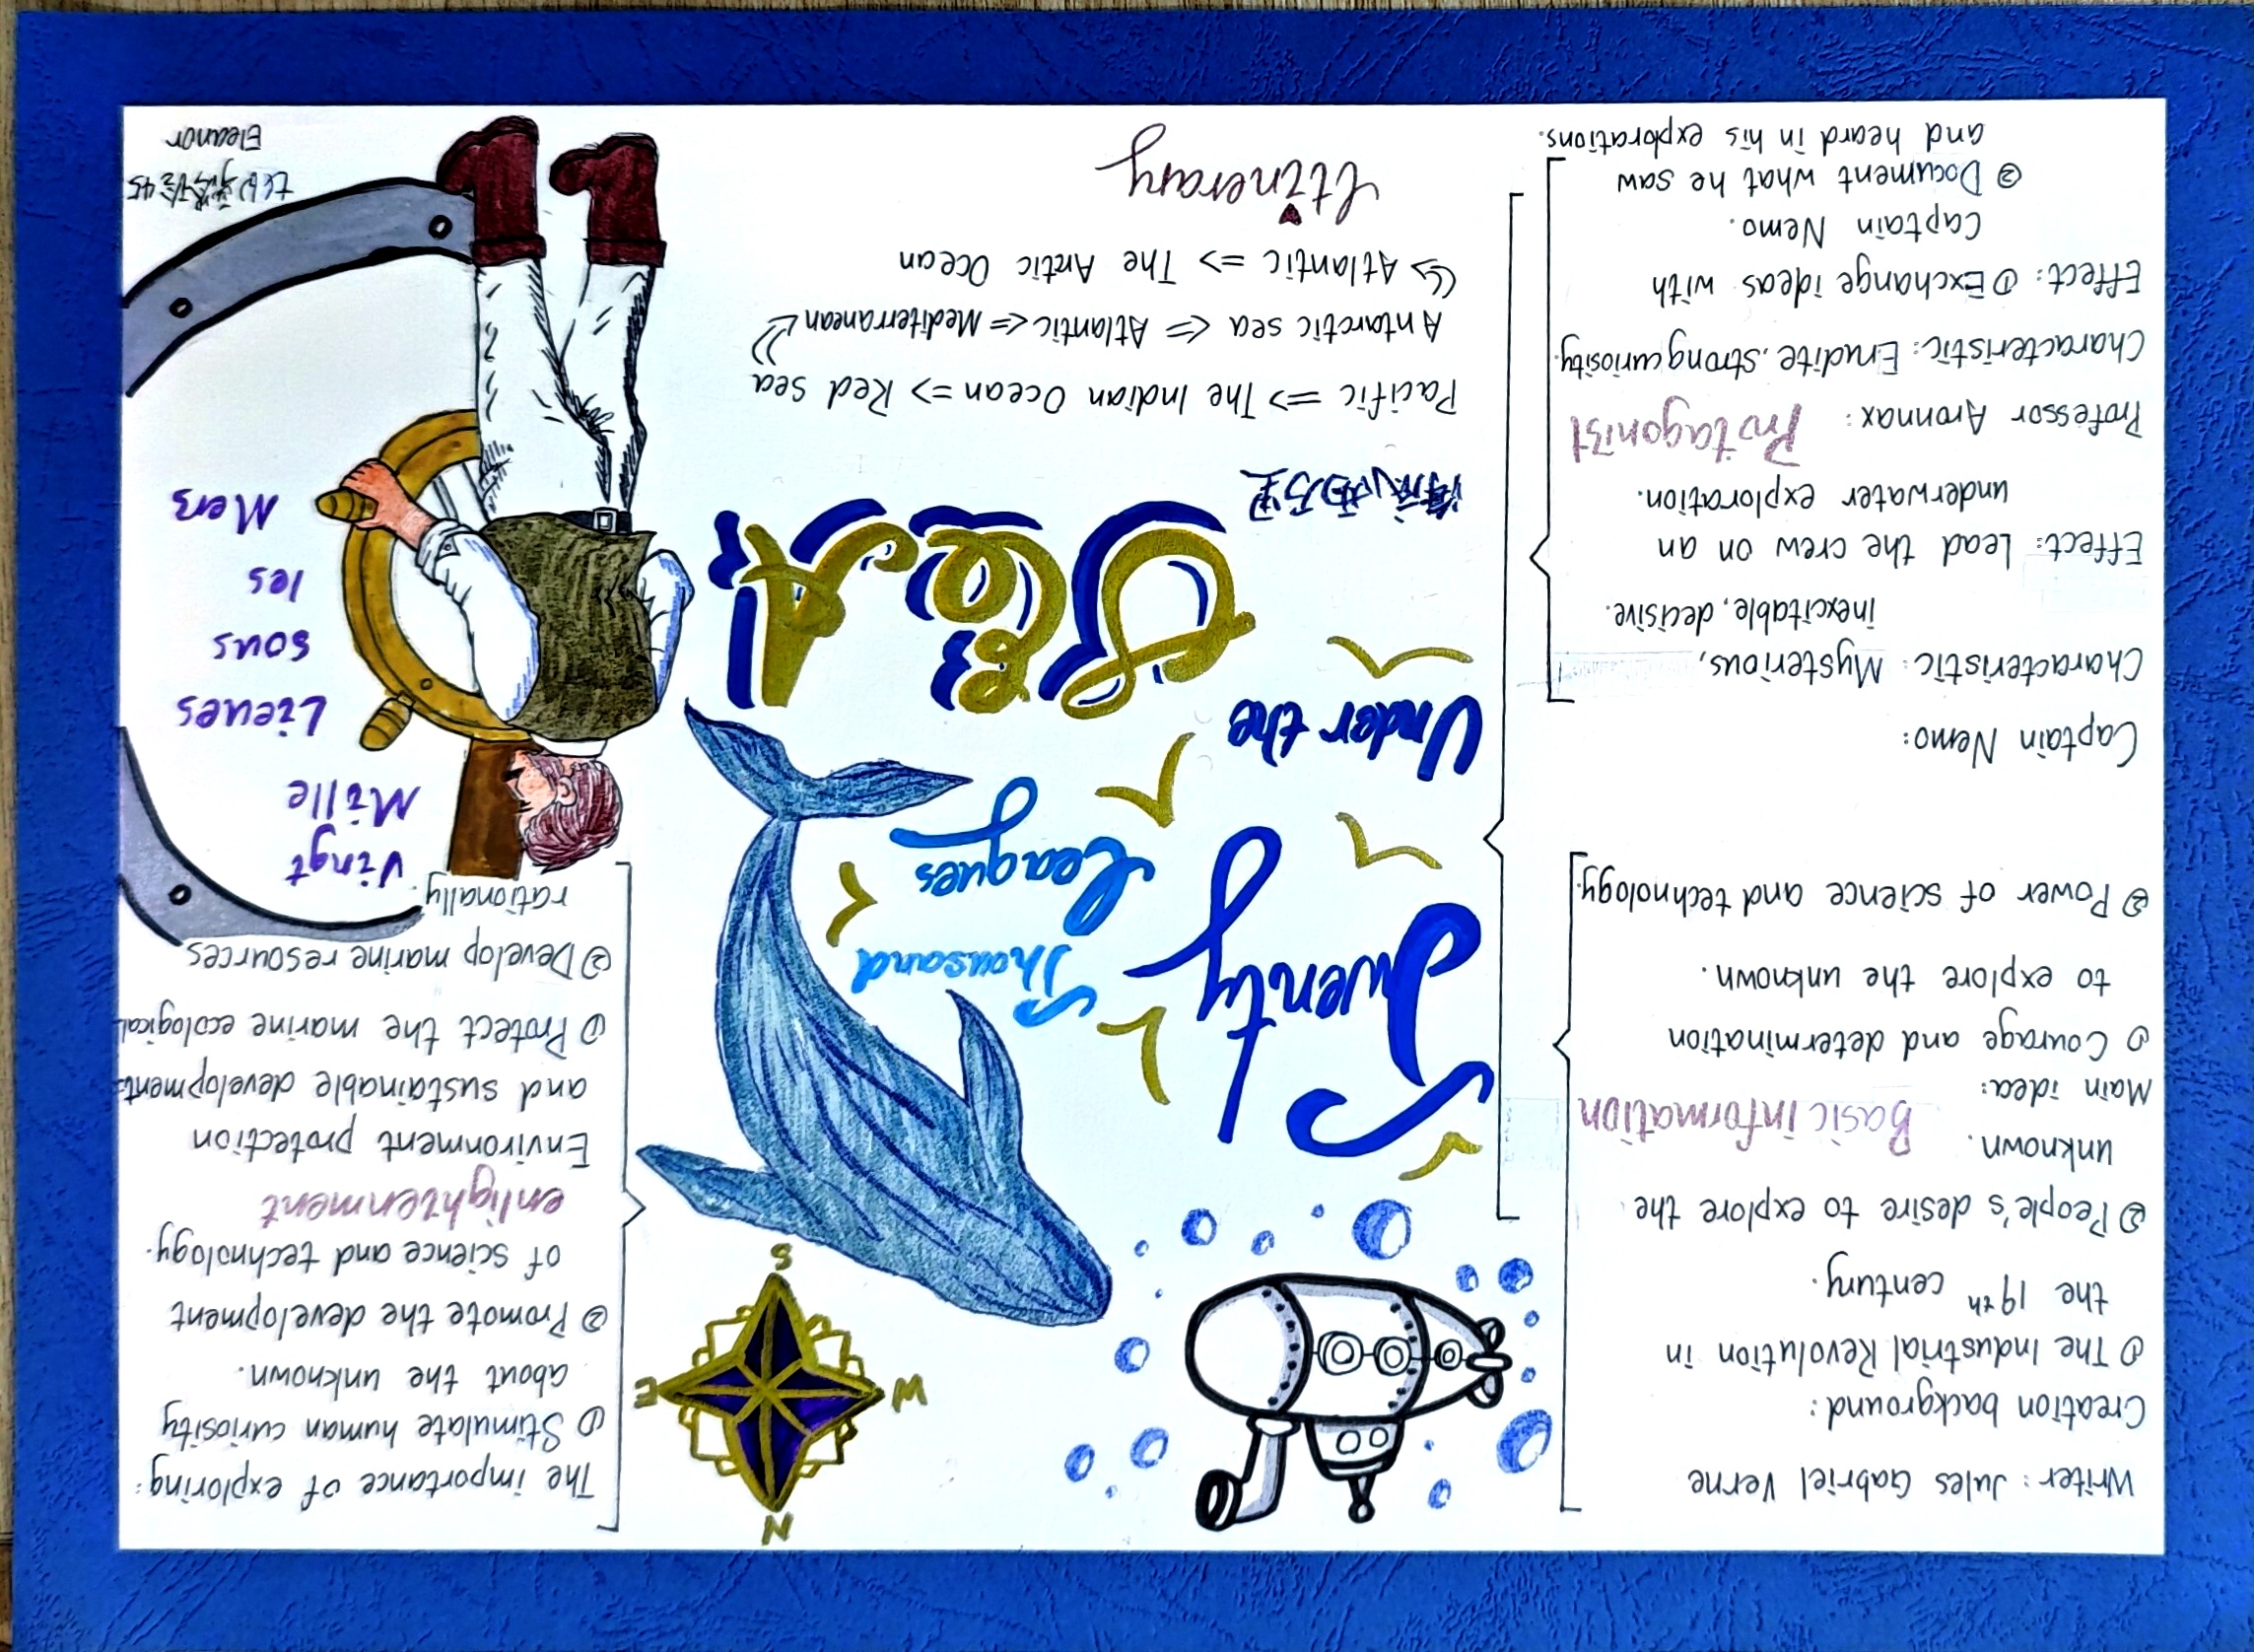 Writer: Jules Gabriel Verne
Creation background:
① The Industrial Revolution in
the 19th century.
② People's desire to explore the
unknown.
Basic information
Main idea:
① Courage and determination
to explore the unknown.
② Power of science and technology.
Captain Nemo:
Characteristic: Mysterious,
inexcitable, decisive.
Effect: Lead the crew on an
underwater exploration.
Protagonist
Professor Aronnax:
Characteristic: Erudite, strong curiosity.
Effect: ① Exchange ideas with
Captain Nemo.
② Document what he saw
and heard in his explorations.
N
W E
S
Twenty
Thousand
leagues
Under the
SEA!
海底两万里
Pacific => The Indian Ocean => Red sea
Antarctic sea <= Atlantic <= Mediterranean
Atlantic => The Arctic Ocean
Itinerary
The importance of exploring:
① Stimulate human curiosity
about the unknown.
② Promote the development
of science and technology.
enlightenment
Environment protection
and sustainable development:
① Protect the marine ecological
② Develop marine resources
rationally.
Vingt
Mille
Lieues
sous
les
Mers
45
Eleanor